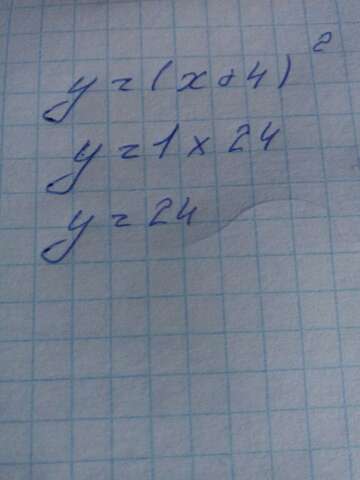 y = (x + 4)²
y = 1 x 24
y = 24